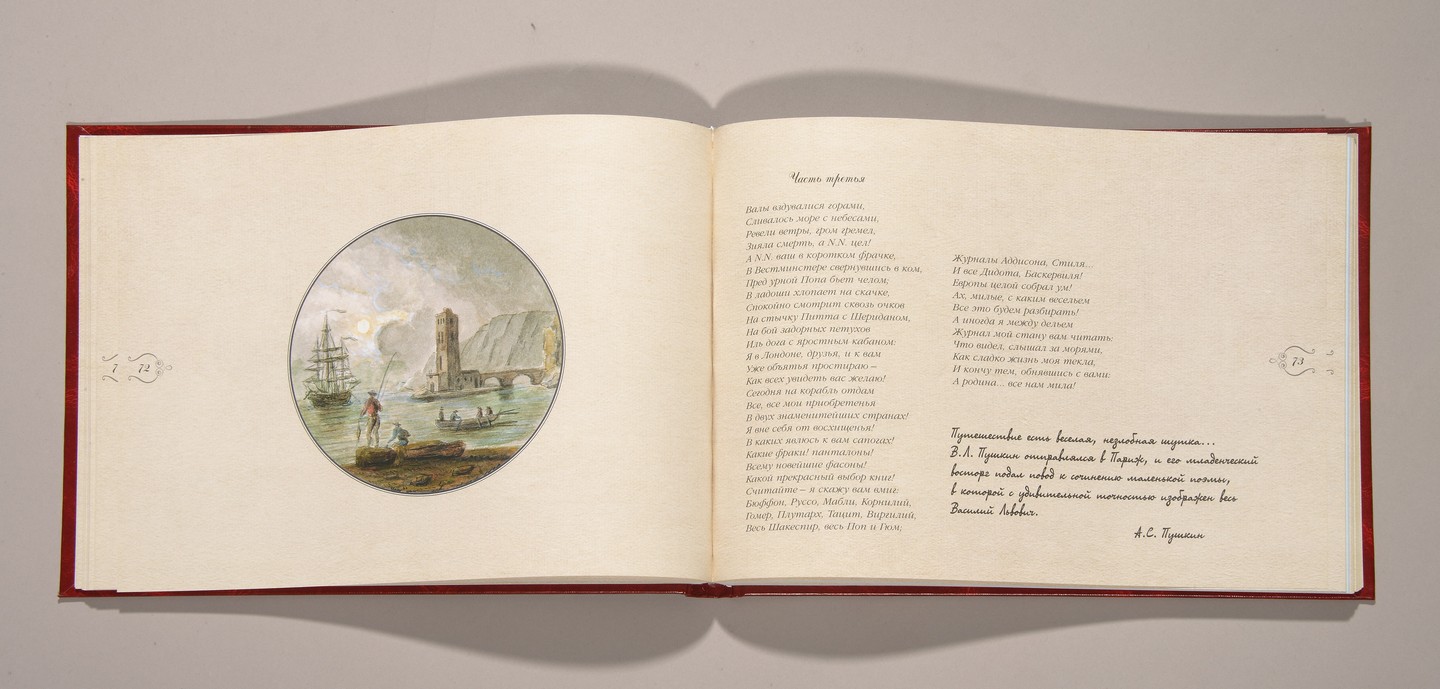 7
72
Часть третья
Валы вздувалися горами,
Сливалось море с небесами,
Ревели ветры, гром гремел,
Зияла смерть, а N.N. цел!
А N.N. ваш в коротком фрачке,
В Вестминстере свернувшись в ком,
Пред урной Попа бьет челом;
В ладоши хлопает на скачке,
Спокойно смотрит сквозь очков
На стычку Питта с Шериданом,
На бой задорных петухов
Иль дога с яростным кабаном:
Я в Лондоне, друзья, и к вам
Уже объятья простираю –
Как всех увидеть вас желаю!
Сегодня на корабль отдам
Все, все мои приобретенья
В двух знаменитейших странах!
Я вне себя от восхищенья!
В каких явлюсь к вам сапогах!
Какие фраки! панталоны!
Всему новейшие фасоны!
Какой прекрасный выбор книг!
Считайте – я скажу вам вмиг:
Бюффон, Руссо, Мабли, Корнилий,
Гомер, Плутарх, Тацит, Виргилий,
Весь Шакеспир, весь Поп и Гюм;
Журналы Аддисона, Стиля...
И все Дидота, Баскервиля!
Европы целой собрал ум!
Ах, милые, с каким весельем
Все это будем разбирать!
А иногда я между дельем
Журнал мой стану вам читать:
Что видел, слышал за морями,
Как сладко жизнь моя текла,
И кончу тем, обнявшись с вами:
А родина... все нам мила!
Путешествие есть веселая, незлобная шутка...
В.Л. Пушкин отправлялся в Париж, и его младенческий
восторг подал повод к сочинению маленькой поэмы,
в которой с удивительной точностью изображен весь
Василий Львович.
А.С. Пушкин
73